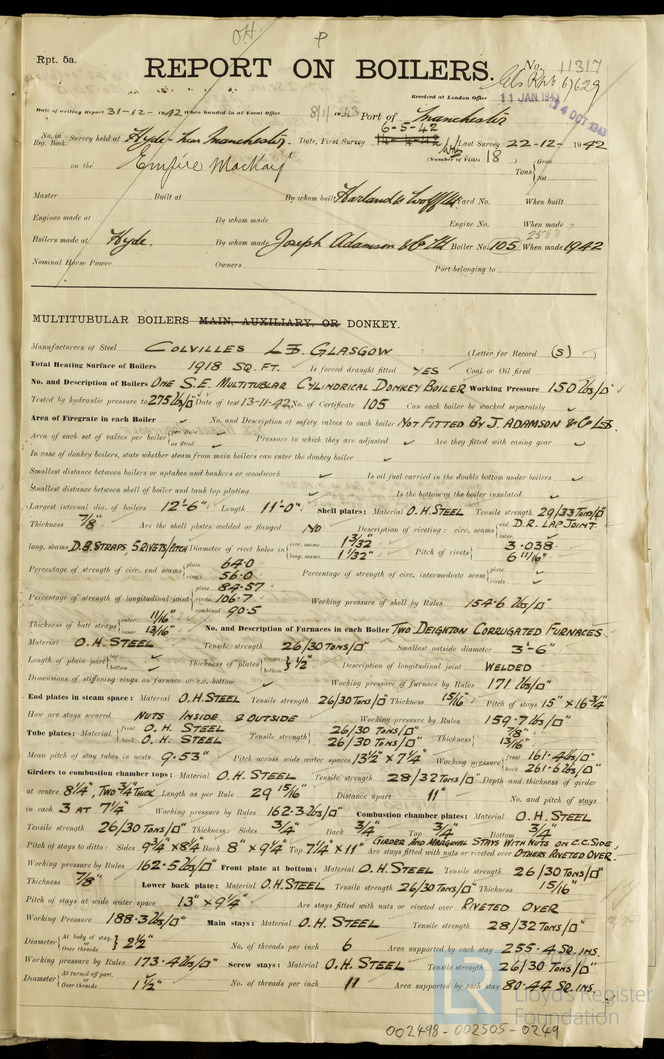 OH P
Rpt. 5a.
REPORT ON BOILERS.
No. 11317
Gls Rpt 67629
Received at London Office 11 JAN 1943 14 OCT 1943
Date of writing Report 31-12-1942 When handed in at Local Office 8/1/1943 Port of Manchester
No. in Reg. Book. Survey held at Hyde, near Manchester. Date, First Survey 6-5-42 Last Survey 22-12-1942
on the Empire Mackay (Number of Visits 18) Tons { Gross Net
Master Built at By whom built Harland & Wolff Ltd. Yard No. When built
Engines made at By whom made Engine No. When made
Boilers made at Hyde. By whom made Joseph Adamson & Co Ltd Boiler No. 105 2588 When made 1942
Nominal Horse Power Owners Port belonging to
MULTITUBULAR BOILERS MAIN, AUXILIARY, OR DONKEY.
Manufacturers of Steel COLVILLES LTD. GLASGOW (Letter for Record (S)
Total Heating Surface of Boilers 1918 SQ. FT. Is forced draught fitted YES Coal or Oil fired
No. and Description of Boilers ONE S.E. MULTITUBLAR CYLINDRICAL DONKEY BOILER Working Pressure 150 lbs/□"
Tested by hydraulic pressure to 275 lbs/□" Date of test 13-11-42 No. of Certificate 105 Can each boiler be worked separately ✓
Area of Firegrate in each Boiler ✓ No. and Description of safety valves to each boiler NOT FITTED BY J. ADAMSON & CO LTD.
Area of each set of valves per boiler { per Rule as fitted Pressure to which they are adjusted ✓ Are they fitted with easing gear ✓
In case of donkey boilers, state whether steam from main boilers can enter the donkey boiler ✓
Smallest distance between boilers or uptakes and bunkers or woodwork ✓ Is oil fuel carried in the double bottom under boilers ✓
Smallest distance between shell of boiler and tank top plating ✓ Is the bottom of the boiler insulated ✓
Largest internal dia. of boilers 12'-6" Length 11'-0" Shell plates: Material O.H. STEEL Tensile strength 29/33 TONS/□"
Thickness 7/8" Are the shell plates welded or flanged NO Description of riveting: circ. seams { end D.R. LAP JOINT inter. ✓
long. seams D.B. STRAPS, 5 RIVETS/PITCH Diameter of rivet holes in { circ. seams 1 3/32" long. seams 1 1/32" Pitch of rivets { 3.038 6 11/16"
Percentage of strength of circ. end seams { plate 64.0 rivets 56.0 Percentage of strength of circ. intermediate seam { plate ✓ rivets ✓
Percentage of strength of longitudinal joint { plate 84.57 rivets 106.7 combined 90.5 Working pressure of shell by Rules 154.6 lbs/□"
Thickness of butt straps { outer 11/16" inner 13/16" No. and Description of Furnaces in each Boiler TWO DEIGHTON CORRUGATED FURNACES.
Material O.H. STEEL Tensile strength 26/30 TONS/□" Smallest outside diameter 3'-6"
Length of plain part { top bottom ✓ Thickness of plates { crown bottom } 1/2" Description of longitudinal joint WELDED
Dimensions of stiffening rings on furnace or c.c. bottom ✓ Working pressure of furnace by Rules 171 lbs/□"
End plates in steam space: Material O.H. STEEL Tensile strength 26/30 TONS/□" Thickness 15/16" Pitch of stays 15" x 16 3/4"
How are stays secured NUTS INSIDE & OUTSIDE Working pressure by Rules 159.7 lbs/□"
Tube plates: Material { front O.H. STEEL back O.H. STEEL Tensile strength { 26/30 TONS/□" 26/30 TONS/□" Thickness { 7/8" 13/16"
Mean pitch of stay tubes in nests 9.53" Pitch across wide water spaces 13 1/2" x 7 1/4" Working pressure { front 161.4 lbs/□" back 261.6 lbs/□"
Girders to combustion chamber tops: Material O.H. STEEL Tensile strength 28/32 TONS/□" Depth and thickness of girder
at centre 8 1/4", TWO 3/4" THICK Length as per Rule 29 15/16" Distance apart 11" No. and pitch of stays
in each 3 AT 7 1/4" Working pressure by Rules 162.3 lbs/□" Combustion chamber plates: Material O.H. STEEL
Tensile strength 26/30 TONS/□" Thickness: Sides 3/4" Back 3/4" Top 3/4" Bottom 3/4"
Pitch of stays to ditto: Sides 9 3/4" x 8 1/4" Back 8" x 9 1/4" Top 7 1/4" x 11" Are stays fitted with nuts or riveted over GIRDER AND MARGINAL STAYS WITH NUTS ON C.C. SIDE, OTHERS RIVETED OVER.
Working pressure by Rules 162.5 lbs/□" Front plate at bottom: Material O.H. STEEL Tensile strength 26/30 TONS/□"
Thickness 7/8" Lower back plate: Material O.H. STEEL Tensile strength 26/30 TONS/□" Thickness 15/16"
Pitch of stays at wide water space 13" x 9 1/4" Are stays fitted with nuts or riveted over RIVETED OVER
Working Pressure 188.3 lbs/□" Main stays: Material O.H. STEEL Tensile strength 28/32 TONS/□"
Diameter { At body of stay, or Over threads } 2 1/2" No. of threads per inch 6 Area supported by each stay 255.4 SQ. INS.
Working pressure by Rules 173.4 lbs/□" Screw stays: Material O.H. STEEL Tensile strength 26/30 TONS/□"
Diameter { At turned off part, or Over threads 1 1/2" No. of threads per inch 11 Area supported by each stay 80.44 SQ. INS.
LR Lloyd's Register Foundation
002498-002505-0249